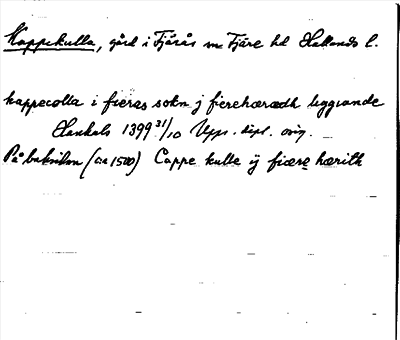 Kappekulla, gård i Fjärås sn Fjäre hd Hallands l.
kappecolla i fieras sokn j fierehæradh liggiande
Hankals 1399 31/10 Upps. dipl. orig.
På baksidan (ca 1500) Cappe kulle ij fiære hærith